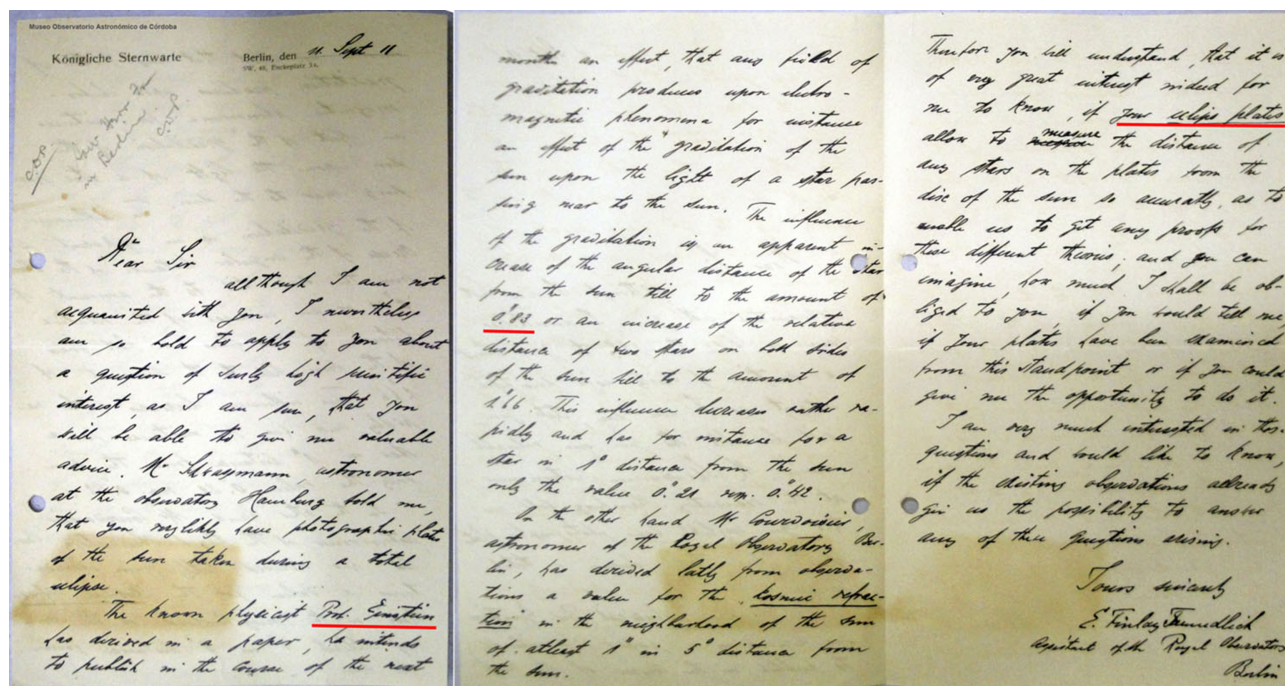 Museo Observatorio Astronómico de Córdoba
Königliche Sternwarte
Berlin, den 11. Sept 11
SW, 48, Enckeplatz 3a.
C.O.P.
Berlin
C.D.P.
Dear Sir
allthough I am not
acquainted with you, I nevertheless
am so bold to apply to you about
a question of surely high scientific
interest, as I am sure, that you
will be able to give me valuable
advice. Mr Schwassmann, astronomer
at the observatory Hamburg told me,
that you very likely have photographic plates
of the sun taken during a total
eclipse.
The known physicist Prof. Einstein
has derived in a paper, he intends
to publish in the course of the next
month an effect, that any field of
gravitation produces upon electro-
magnetic phenomena for instance
an effect of the gravitation of the
sun upon the light of a star pas-
sing near to the sun. The influence
of the gravitation is an apparent in-
crease of the angular distance of the star
from the sun till to the amount of
0."83 or an increase of the relative
distance of two stars on both sides
of the sun till to the amount of
1."66. This influence decreases rather ra-
pidly and has for instance for a
star in 1° distance from the sun
only the value 0."21 resp. 0."42.
On the other hand Mr Courvoisier,
astronomer of the Royal Observatory Ber-
lin, has derived lately from observa-
tions a value for the kosmic refrac-
tion in the neighborhood of the sun
of atleast 1" in 5° distance from
the sun.
Therefore you will understand, that it is
of very great interest indeed for
me to know, if your eclips plates
allow to measure the distance of
any stars on the plates from the
disc of the sun so accurately, as to
enable us to get any proofs for
these different theories; and you can
imagine, how much I shall be ob-
liged to you, if you would tell me
if your plates have been examined
from this standpoint or if you could
give me the opportunity to do it.
I am very much interested in these
questions and would like to know,
if the existing observations allready
give us the possibility to answer
any of these questions arising.
Yours sincerely
E. Finlay Freundlich
assistant of the Royal Observatory
Berlin